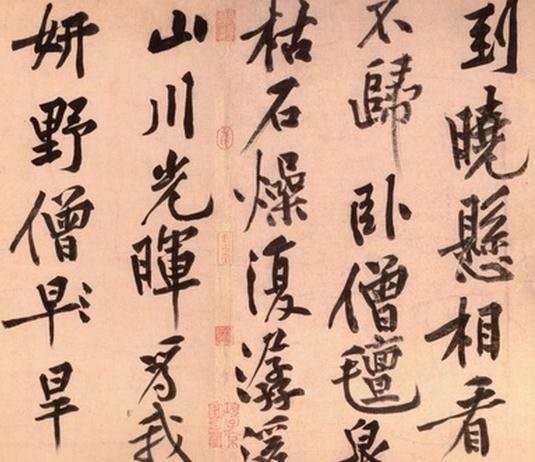 到曉懸相看
不歸臥僧氈泉
枯石燥復潺湲
山川光暉爲我
妍野僧早旱